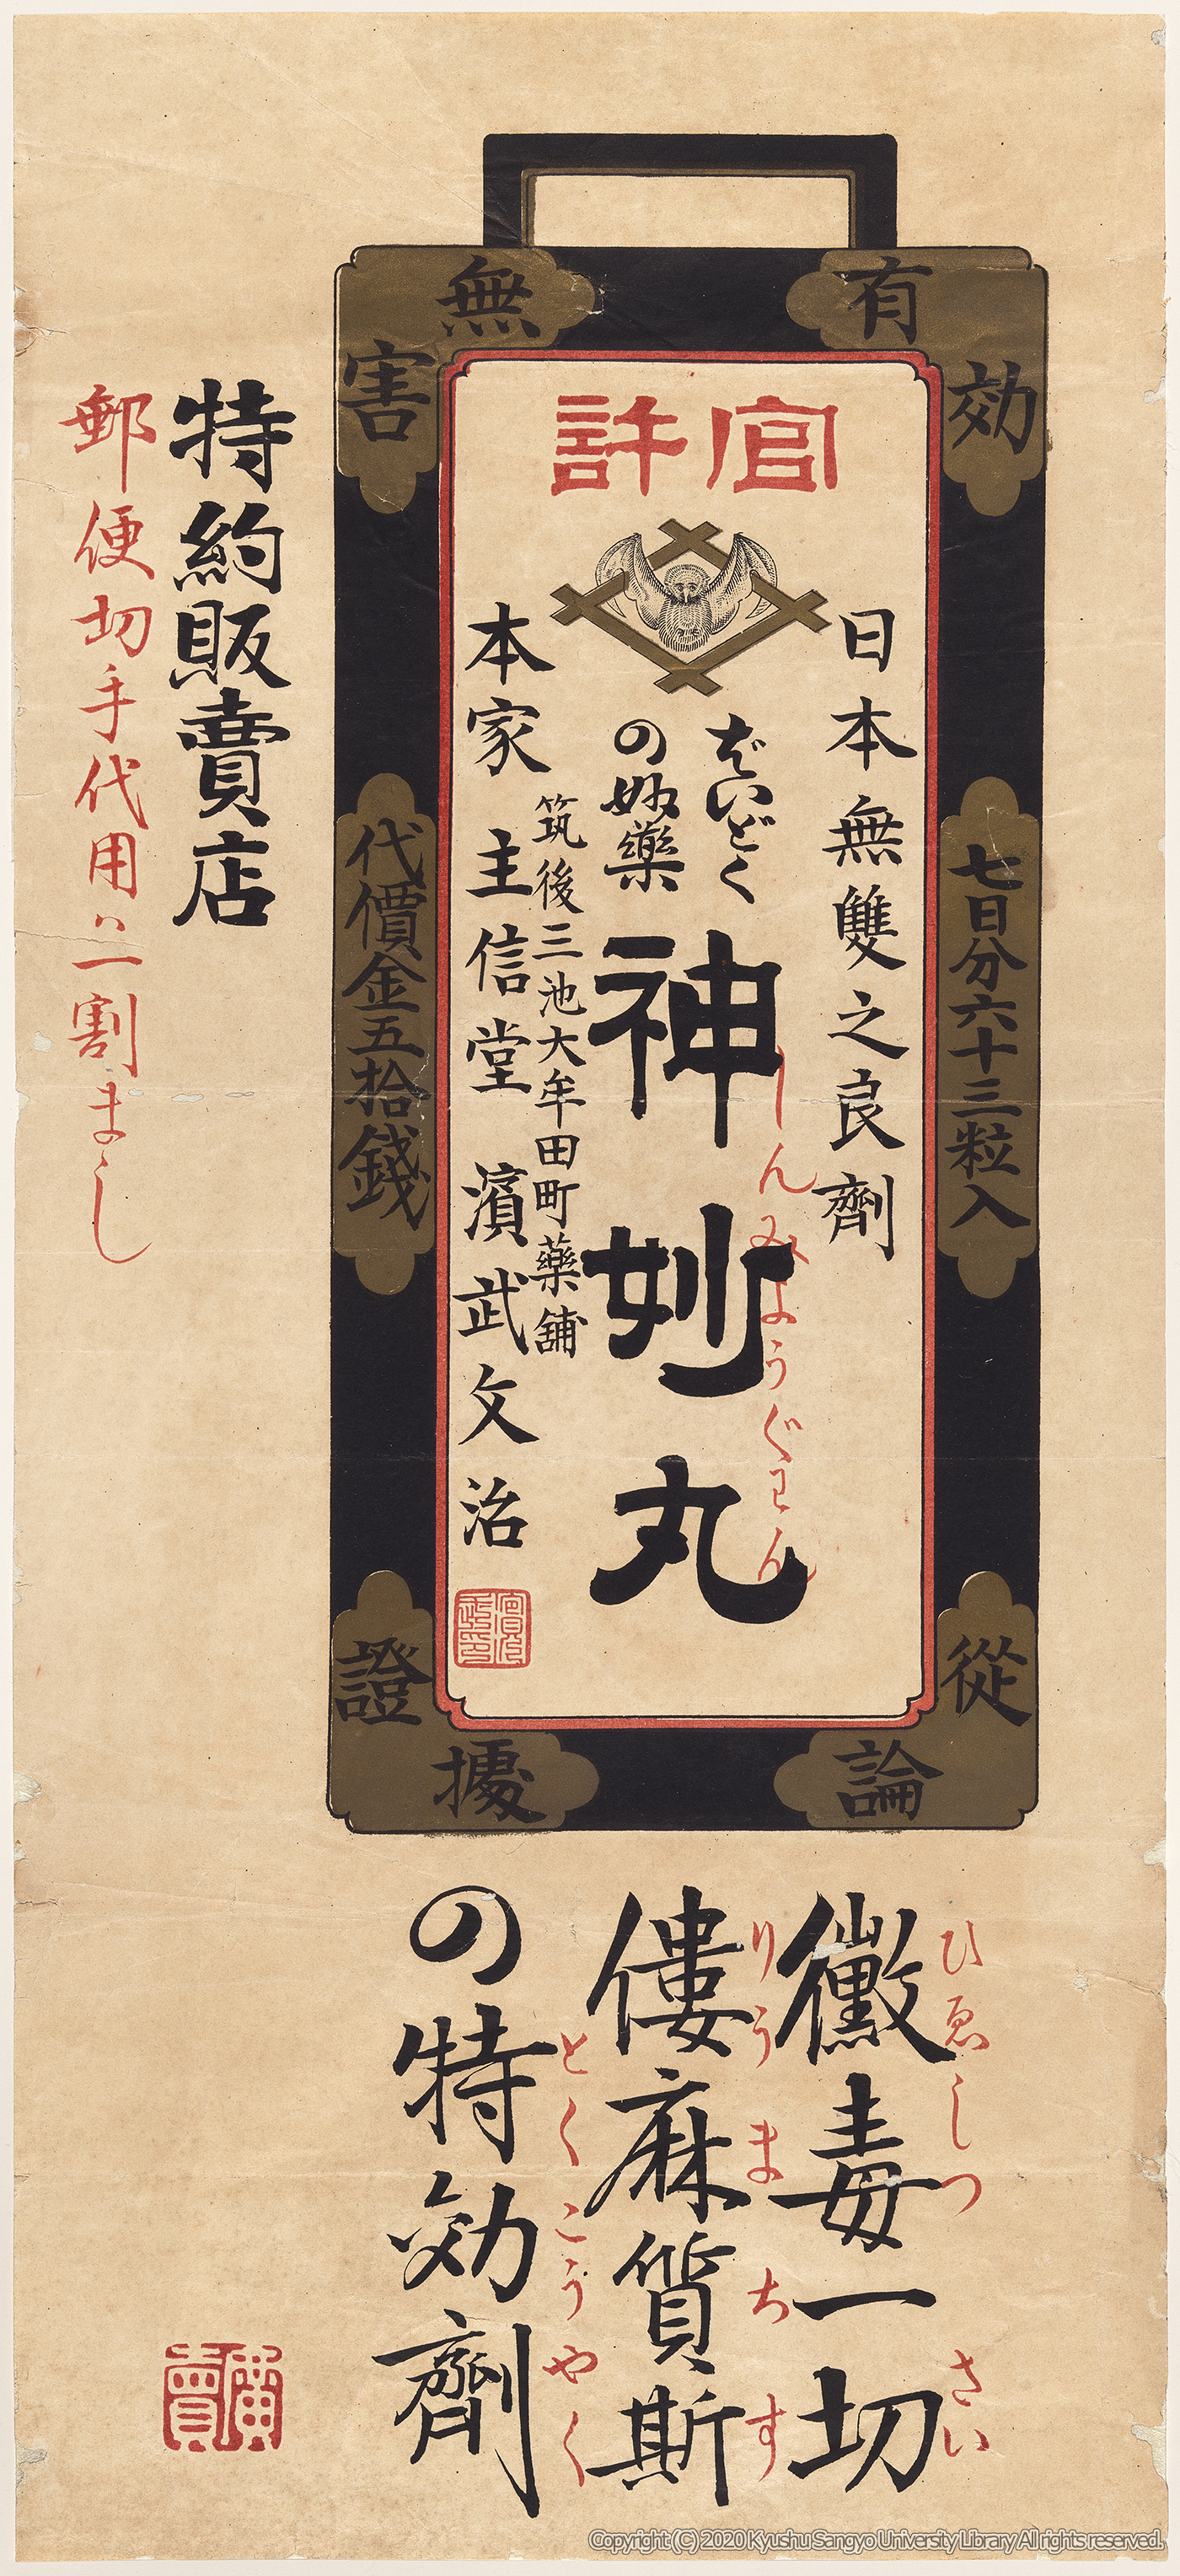 有効
無害
官許
七日分六十三粒入
日本無雙之良劑
ばいどく
の妙藥
神妙丸
しんみようぐわん
筑後三池大牟田町藥舖
本家 主信堂 濱武文治
代價金五拾錢
從論
證據
特約販賣店
郵便切手代用ハ一割まし
黴毒一切
ひゑしつ さい
僂麻質斯
りうまちす
の特効劑
とくこうやく
Copyright (C) 2020 Kyushu Sangyo University Library All rights reserved.